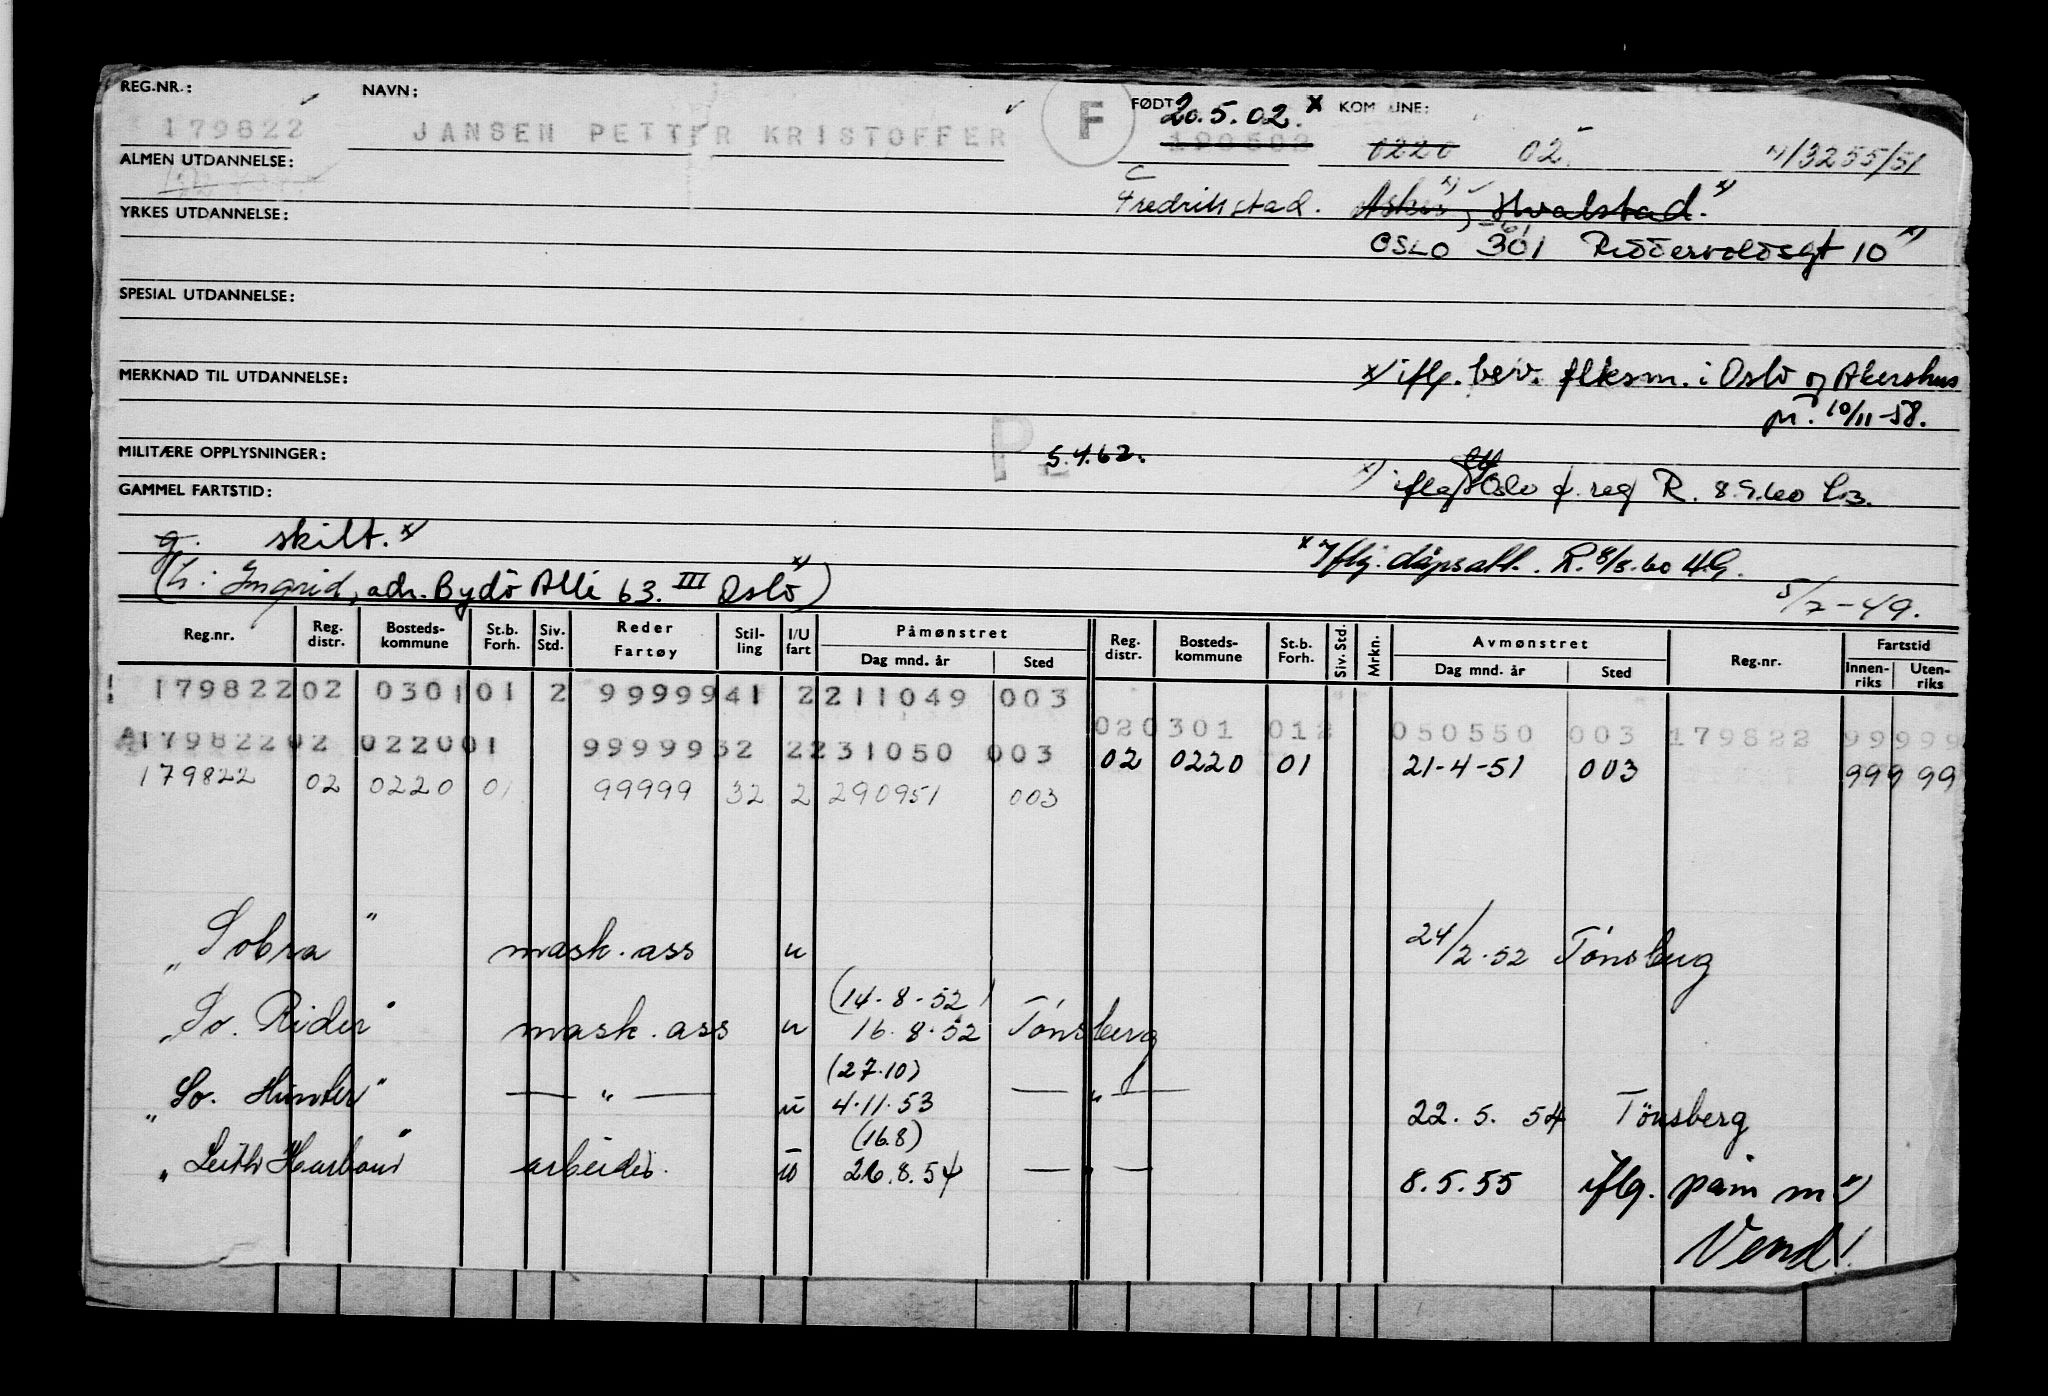 REG.NR.: NAVN: FØDT 20.5.02. x KOMMUNE:
179822 JANSEN PETTER KRISTOFFER F 190502 0220 02. x) 13255/51
ALMEN UTDANNELSE:
Fredrikstad. Asker x), Hvalstad. x)
YRKES UTDANNELSE:
OSLO 301 Riddervoldsgt 10 x)
SPESIAL UTDANNELSE:
MERKNAD TIL UTDANNELSE:
x) iflg. bev. flksm. i Oslo og Akershus
pr. 10/11-58.
MILITÆRE OPPLYSNINGER: P 5.4.62.
GAMMEL FARTSTID: x) iflg Oslo f. reg R. 8.9.60
g. skilt. x)
x Iflg. dåpsatt. R. 8/8.60 H.G.
(h: Ingrid, adr. Bydö Alle 63. III Oslo x)) 5/7-49.
Reg.nr. Reg. distr. Bosteds-kommune St.b. Forh. Siv. Std. Reder Fartøy Stil-ling I/U fart Påmønstret Dag mnd. år Sted Reg. distr. Bosteds-kommune St.b. Forh. Siv. Std. Mrkn. Avmønstret Dag mnd. år Sted Reg.nr. Fartstid Innen-riks Uten-riks
179822 02 0301 01 2 99999 41 2 211049 003
020301 012 050550 003 179822 99999
A179822 02 0220 01 99999 32 2 231050 003
02 0220 01 21-4-51 003 999 99
179822 02 0220 01 99999 32 2 290951 003
"Sobra" mask. ass u 24/2.52 Tønsberg
(14-8-52)
"So. Rider" mask. ass u 16.8.52 Tønsberg
(27.10)
"So. Hunter" — " — u 4.11.53 — " — 22.5.54 Tønsberg
(16.8)
"Leith Harbour" arbeider. u 26.8.54 — " — 8.5.55 iflg. påm m x)
Vend!